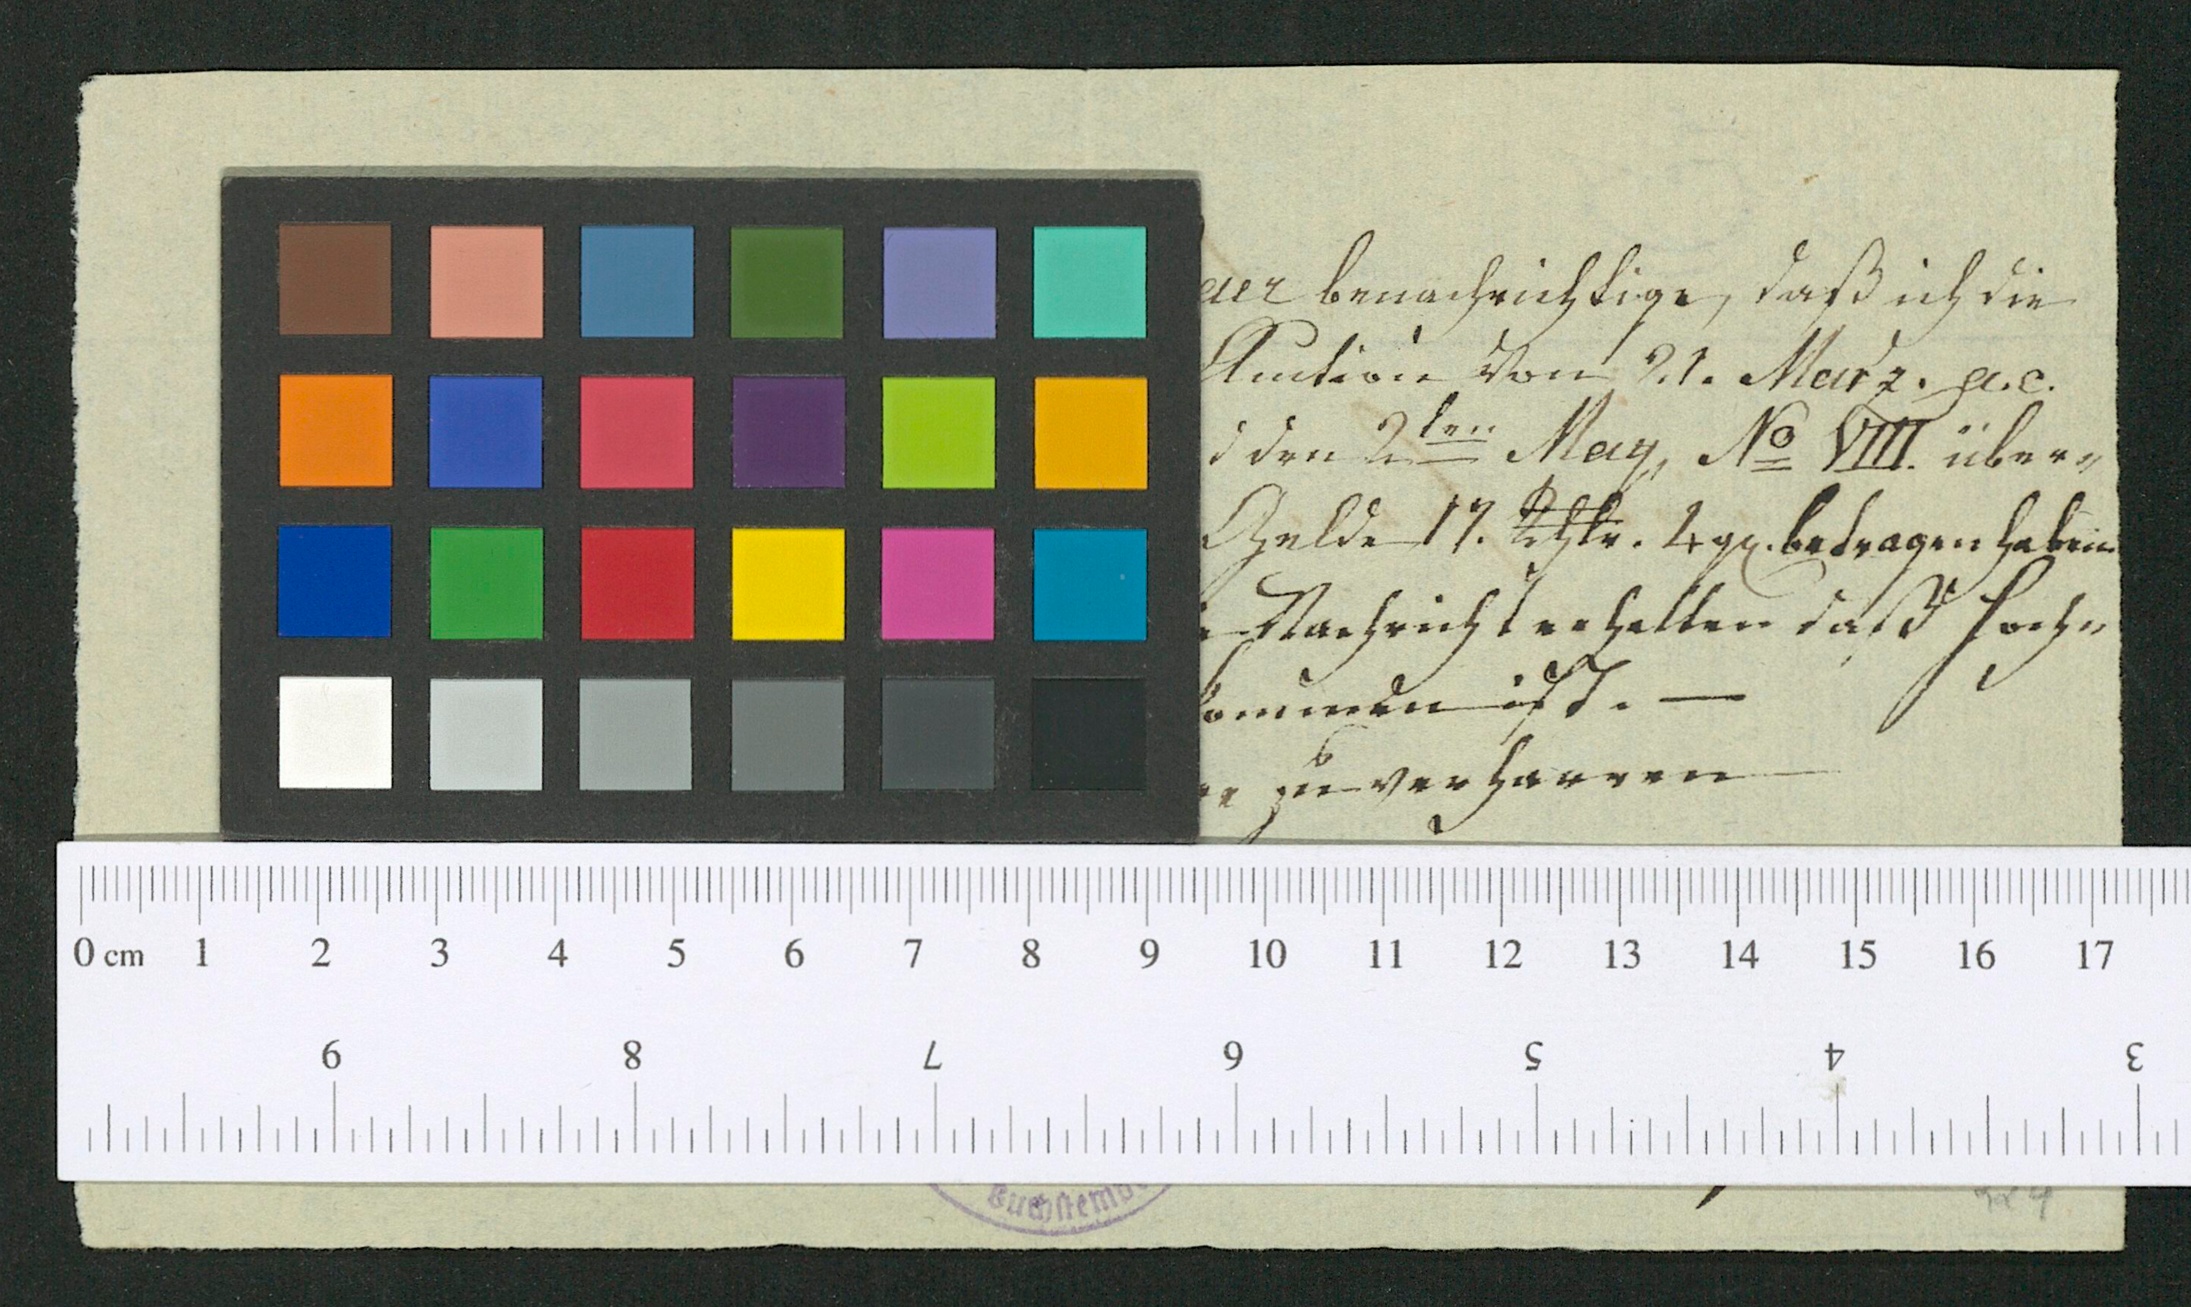 benachrichtige, daß ich die
Auction von 21. Marz. a.c.
den 2ten May, No VIII. über=
Gelde 17. Rthlr. 4 gr. betragen haben
Nachricht erhalten daß hoch=
kommen ist. —
zu verharren
0 cm 1 2 3 4 5 6 7 8 9 10 11 12 13 14 15 16 17
9 8 7 6 5 4 3